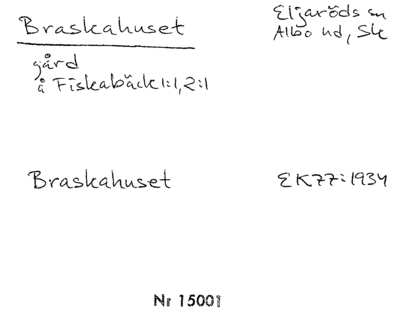 Braskahuset
Eljaröds sn
Albo hd, Sk
gård
å Fiskabäck 1:1, 2:1
Braskahuset
EK77:1934
Nr 15001